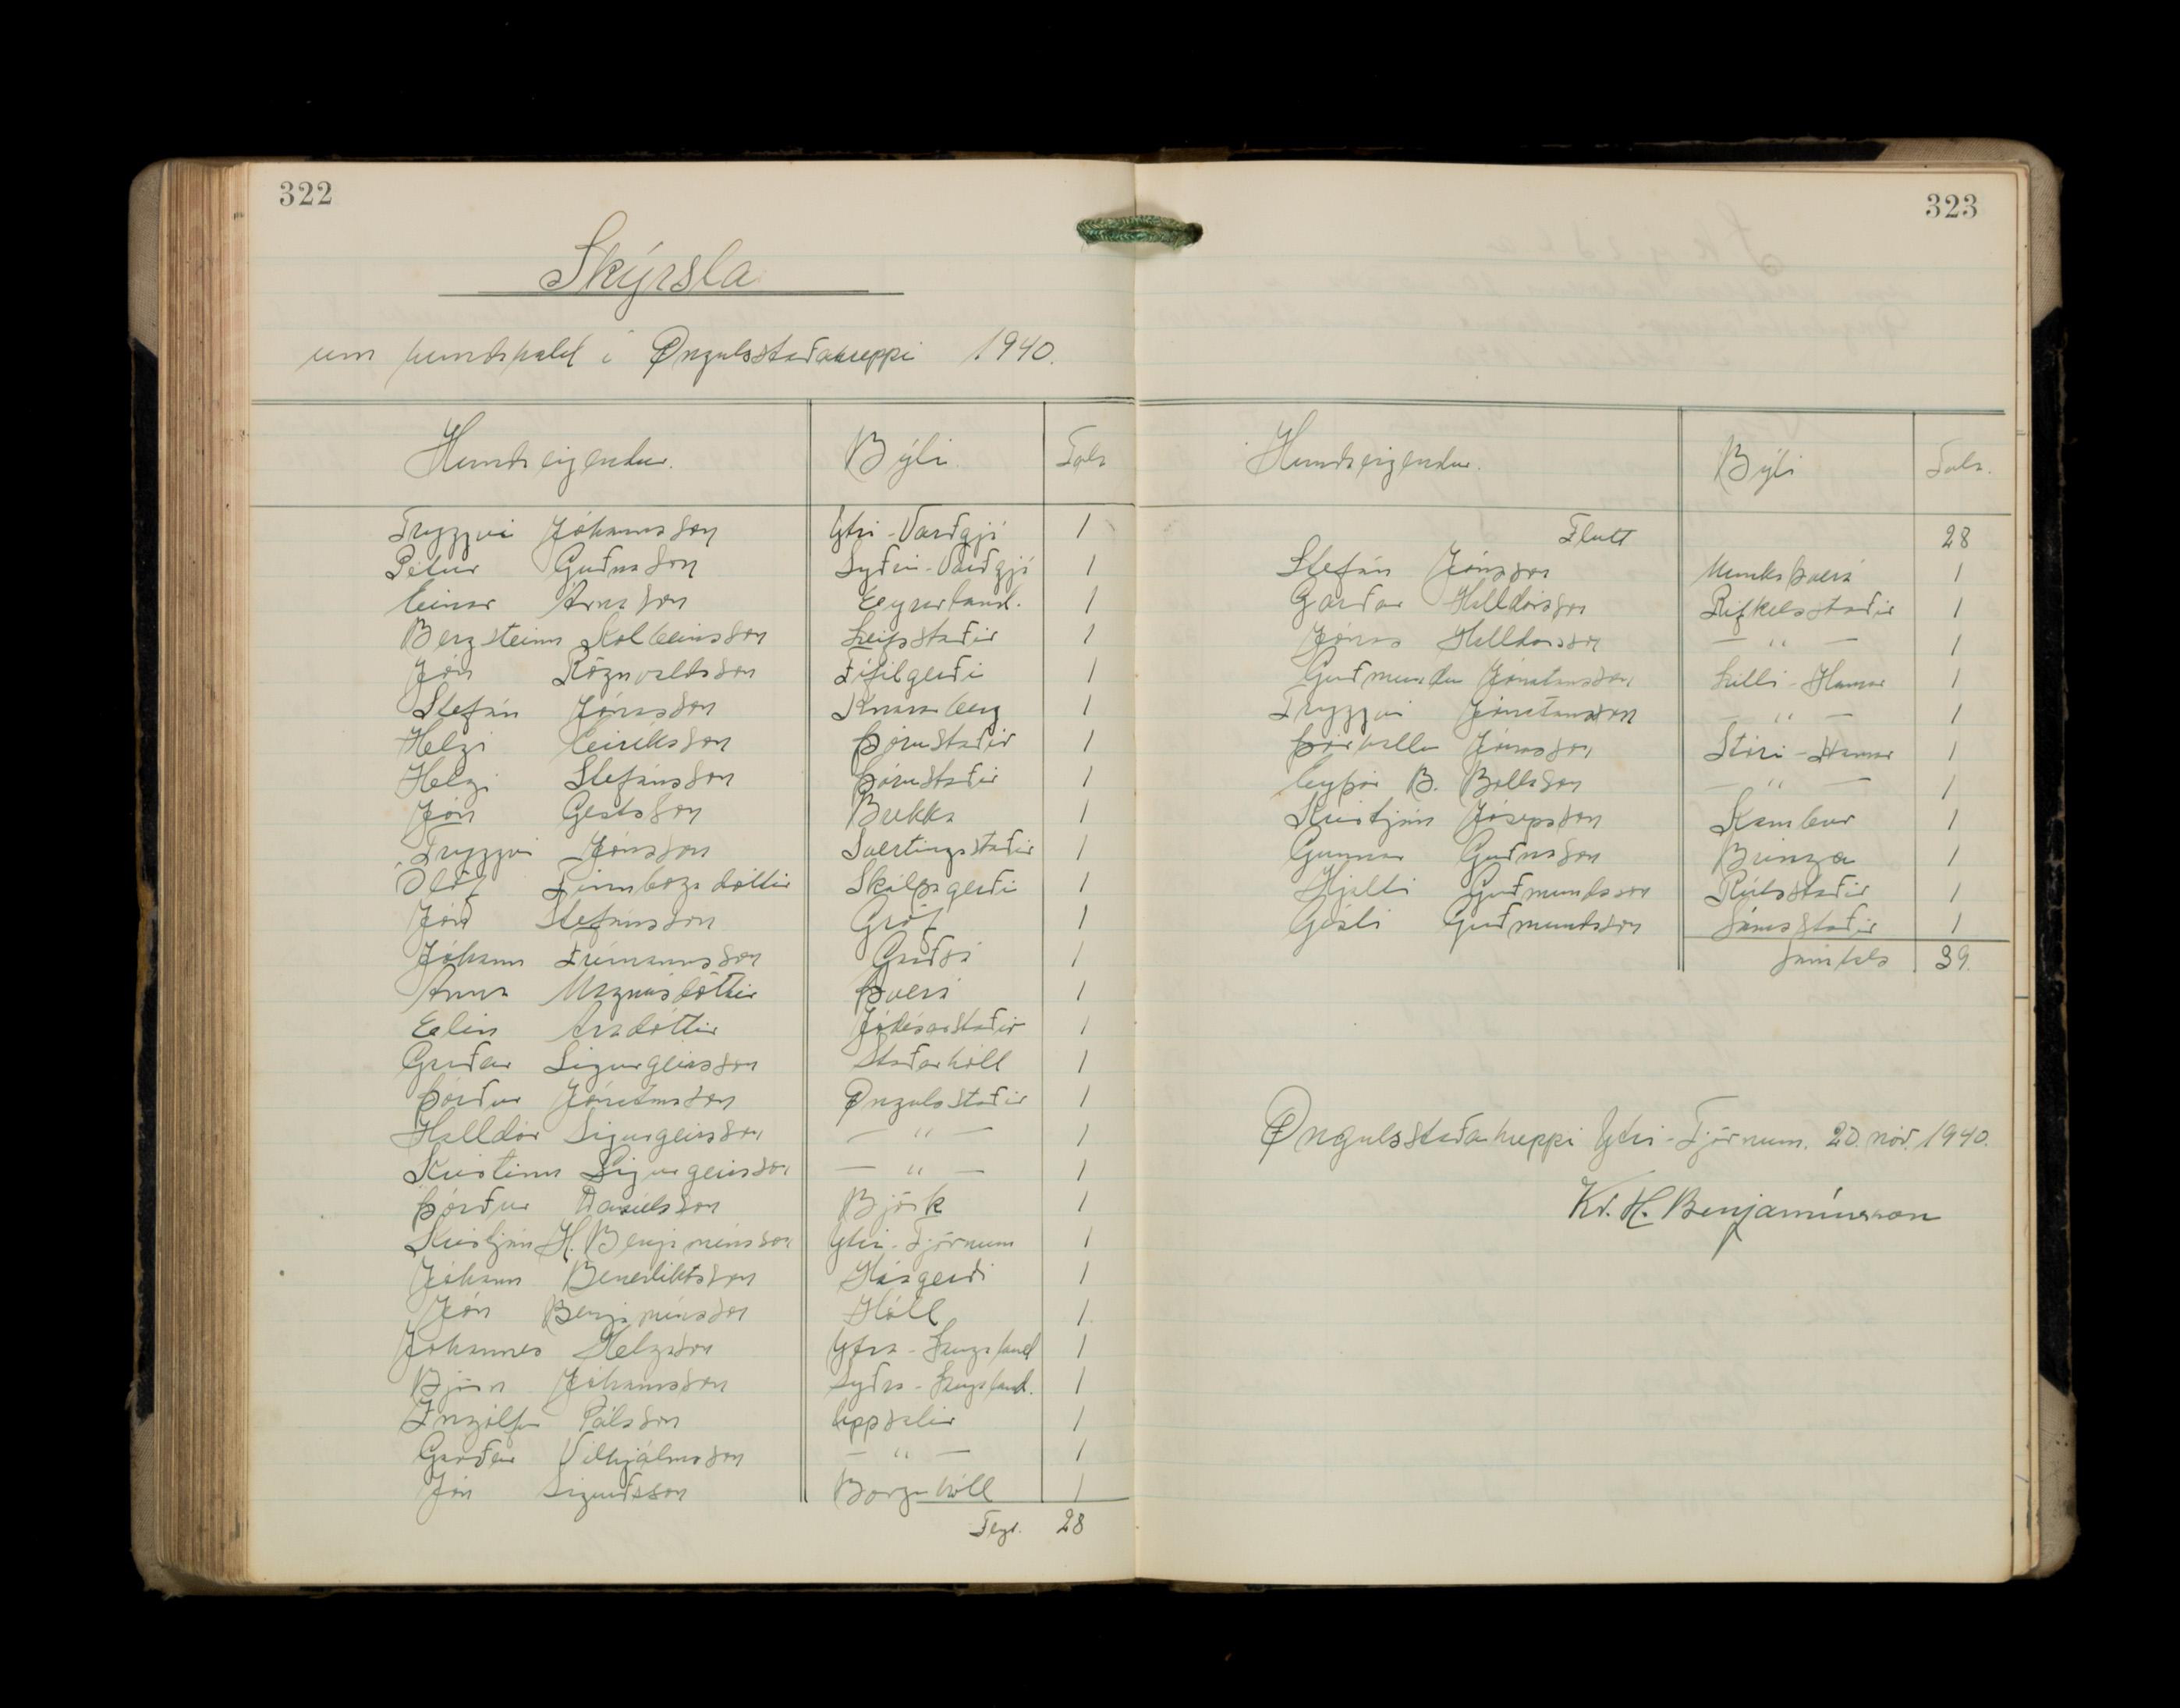 322
Skýrsla
um hundahald í Öngulsstaðahreppi 1940.
Hundaeigendur. Býli. Tala
Tryggvi Jóhannsson Ytri-Varðgjá 1
Pétur Guðnason Syðri-Varðgjá 1
Einar Árnason Eyrarland. 1
Bergsteinn Kolbeinsson Leifsstaðir 1
Jón Rögnvaldsson Fífilgerði 1
Stefán Jónsson Knararberg 1
Helgi Eiríksson Þórustaðir 1
Helgi Stefánsson Þórustaðir 1
Jón Gestsson Brekka 1
Tryggvi Jónsson Svertingsstaðir 1
Ólöf Finnbogadóttir Skálpagerði 1
Jón Stefánsson Gröf 1
Jóhann Frímannsson Garðsá 1
Anna Magnúsdóttir Þverá 1
Elín Aradóttir Jódísarstaðir 1
Garðar Sigurgeirsson Staðarhóll 1
Þórður Jónatansson Öngulsstaðir 1
Halldór Sigurgeirsson — " — 1
Kristinn Sigurgeirsson — " — 1
Þórður Daníelsson Björk 1
Kristján H. Benjamínsson Ytri-Tjörnum 1
Jóhann Benediktsson Háagerði 1
Jón Benjamínsson Hóll 1
Jóhannes Helgason Ytra-Laugaland 1
Björn Jóhannsson Syðra-Laugaland. 1
Ingólfur Pálsson Uppsalir 1
Garðar Vilhjálmsson — " — 1
Jón Sigurðsson Borgarhóll 1
Flyt. 28
323
Hundaeigendur. Býli Tala.
Flutt 28
Stefán Jónsson Munkaþverá 1
Garðar Halldórsson Rifkelsstaðir 1
Jónas Halldorsson — " — 1
Guðmundur Jónatansson Litli-Hamar 1
Tryggvi Jónatansson — " — 1
Þórhallur Jónasson Stóri-Hamar 1
Eyþór B. Bollason — " — 1
Kristján Jósepsson Kambur 1
Gunnar Guðnason Bringa 1
Hjalti Guðmundsson Rútsstaðir 1
Gísli Guðmundsson Sámsstaðir 1
Samtals 39.
Öngulsstaðahreppi Ytri-Tjörnum. 20. nóv. 1940.
Kr. H. Benjamínsson